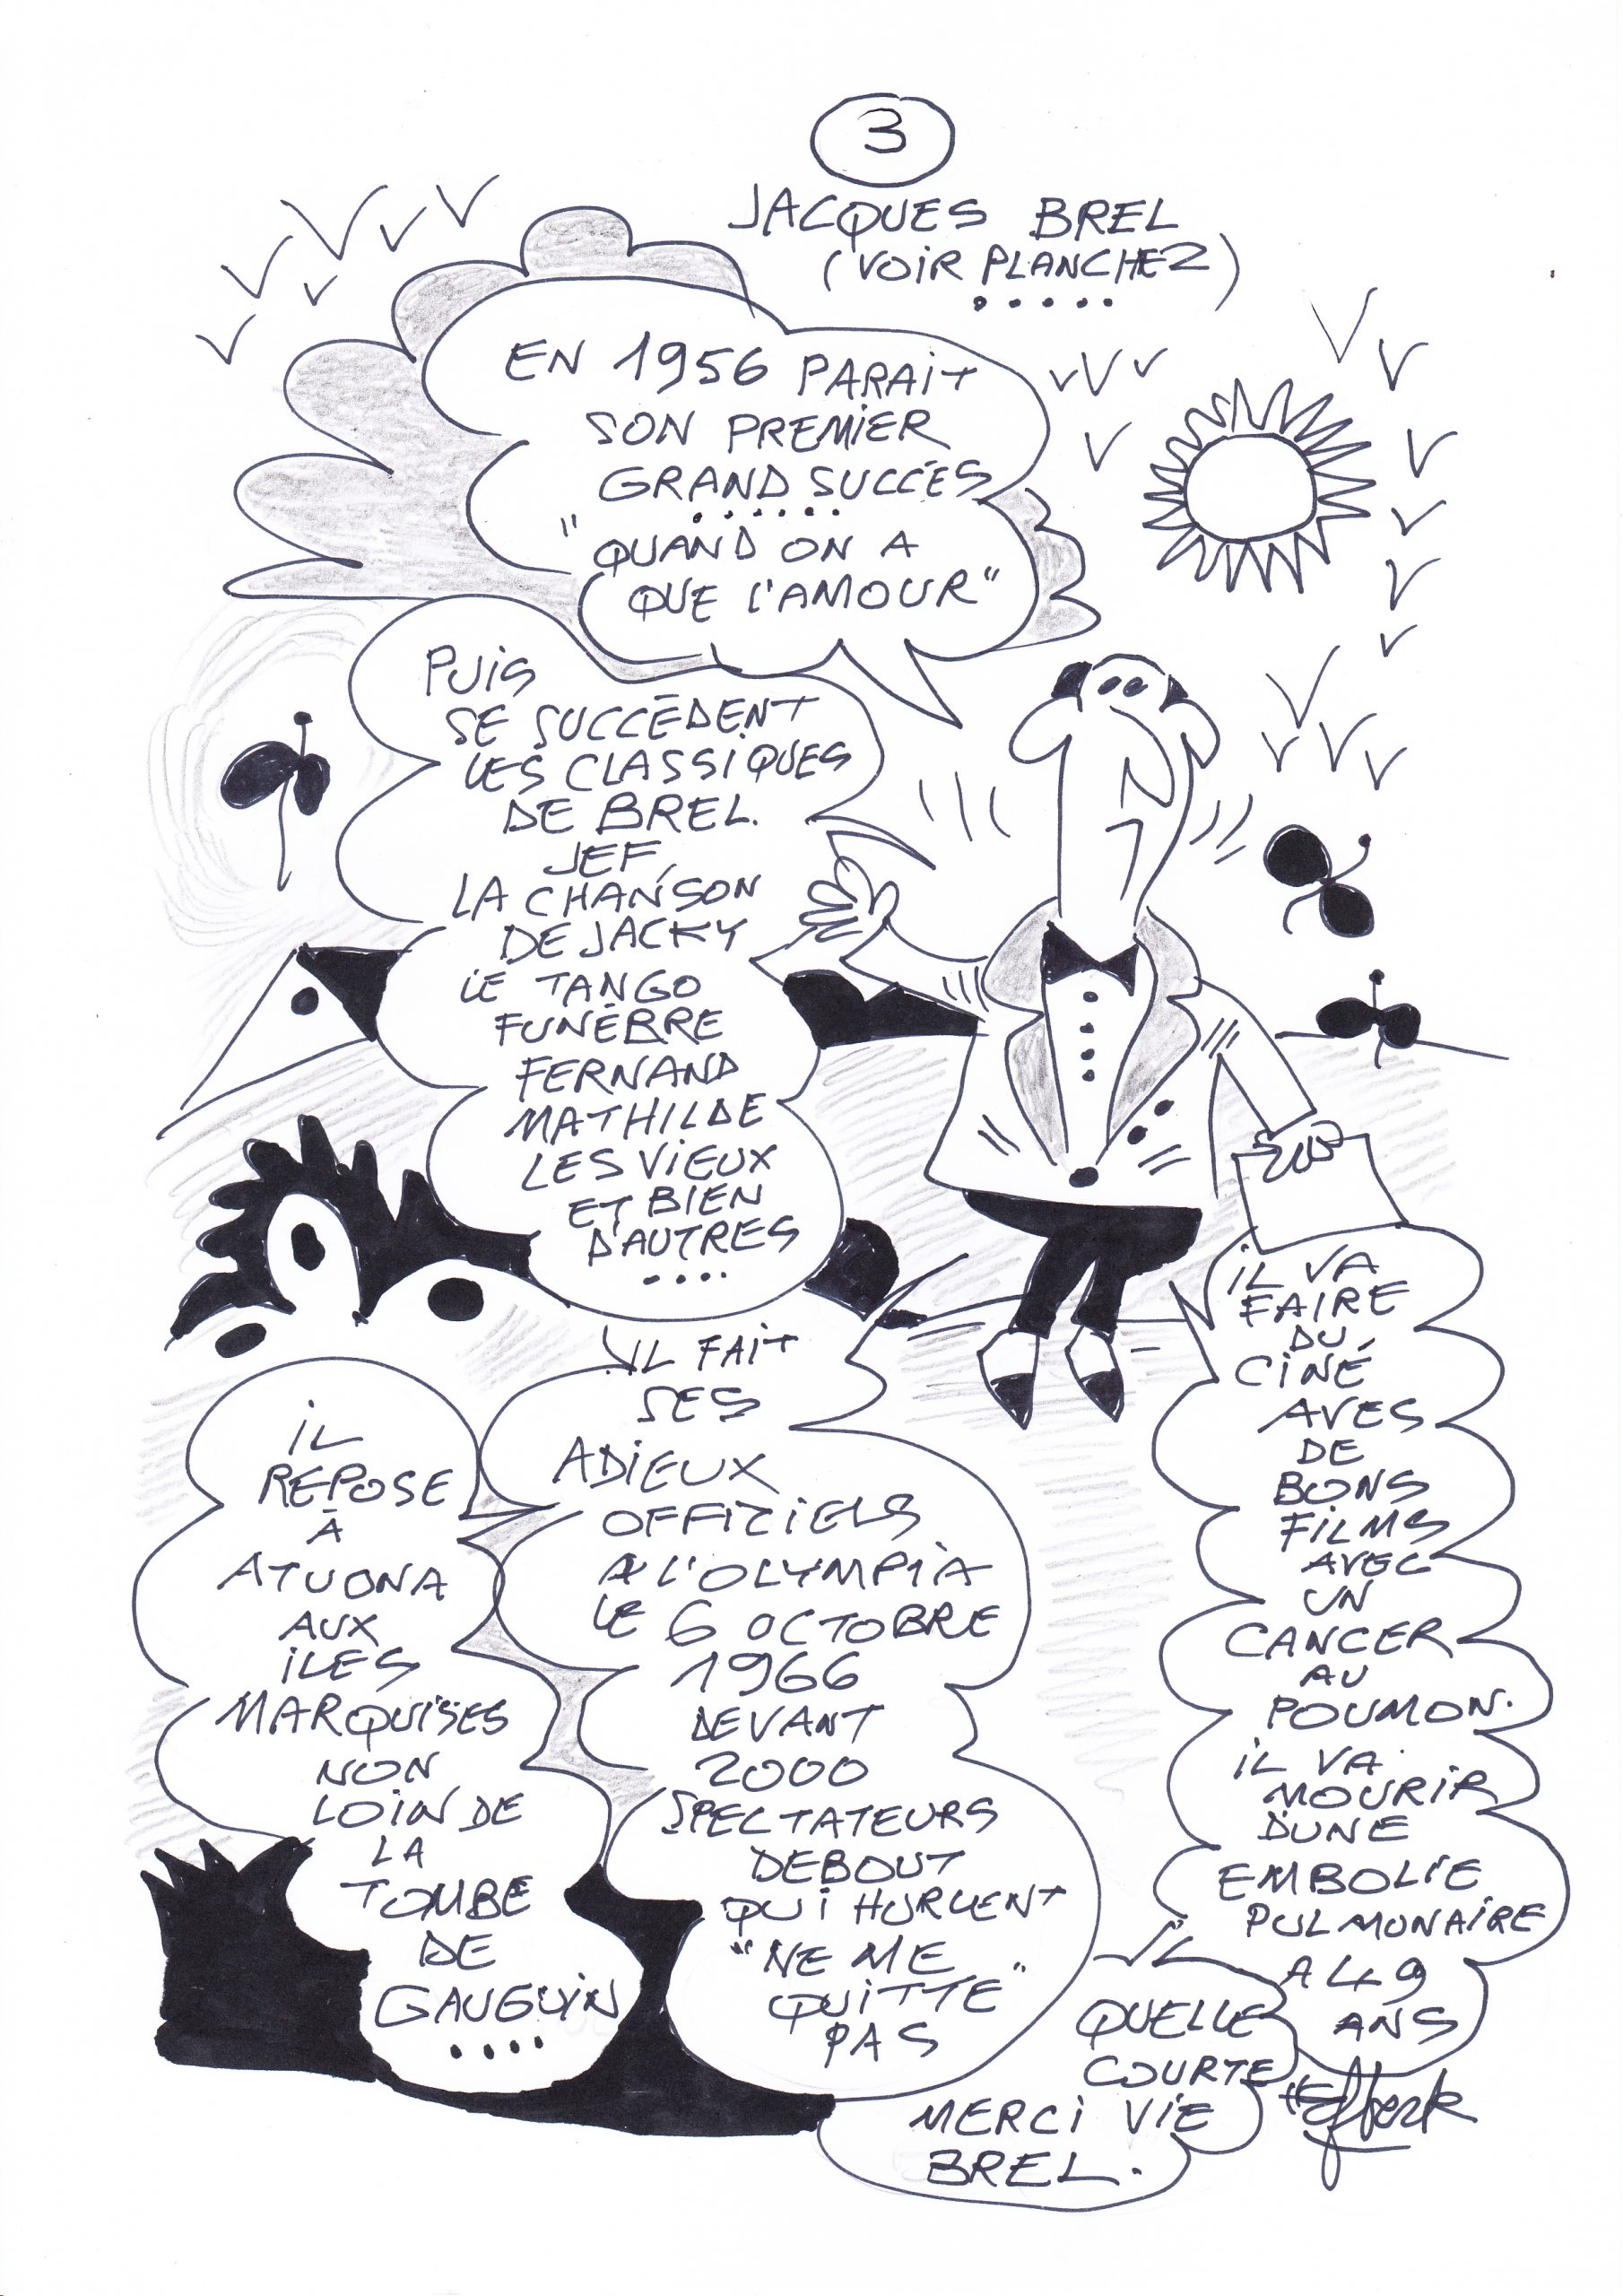 3
JACQUES BREL
(VOIR PLANCHE 2)
EN 1956 PARAIT
SON PREMIER
GRAND SUCCÉS
"QUAND ON A
QUE L'AMOUR"
PUIS
SE SUCCÉDENT
LES CLASSIQUES
DE BREL.
JEF,
LA CHANSON
DE JACKY
LE TANGO
FUNÉBRE
FERNAND
MATHILDE
LES VIEUX
ET BIEN
D'AUTRES
....
IL FAIT
SES
ADIEUX
OFFICIELS
A L'OLYMPIA
LE 6 OCTOBRE
1966
DEVANT
2000
SPECTATEURS
DEBOUT
QUI HURLENT
"NE ME
QUITTE"
PAS
IL VA
FAIRE
DU
CINÉ
AVES
DE
BONS
FILMS
AVEC
UN
CANCER
AU
POUMON.
IL VA
MOURIR
DUNE
EMBOLIE
PULMONAIRE
A 49
ANS
IL
REPOSE
À
ATUONA
AUX
ILES
MARQUISES
NON
LOIN DE
LA
TOMBE
DE
GAUGUIN
....
QUELLE
COURTE
MERCI VIE
BREL.